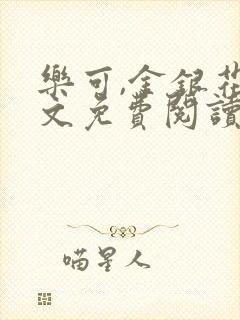 樂可,金銀花
文免費閱讀
喵星人